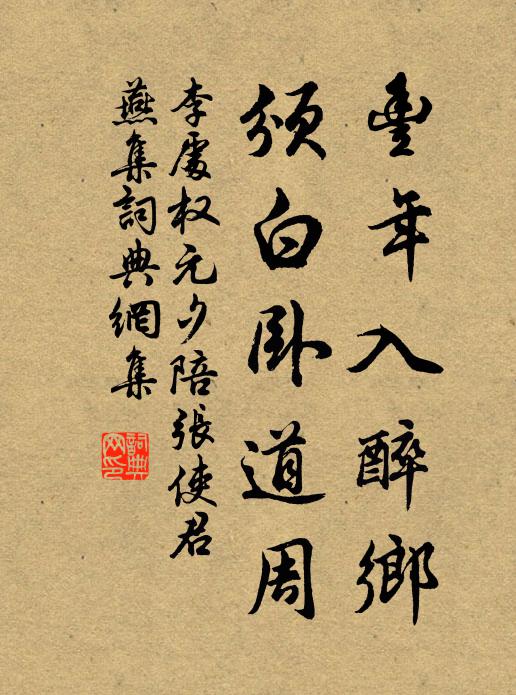 豊年入醉鄉
頒白卧道周
李處权元夕陪張使君
燕集詞典網集
詞典網印